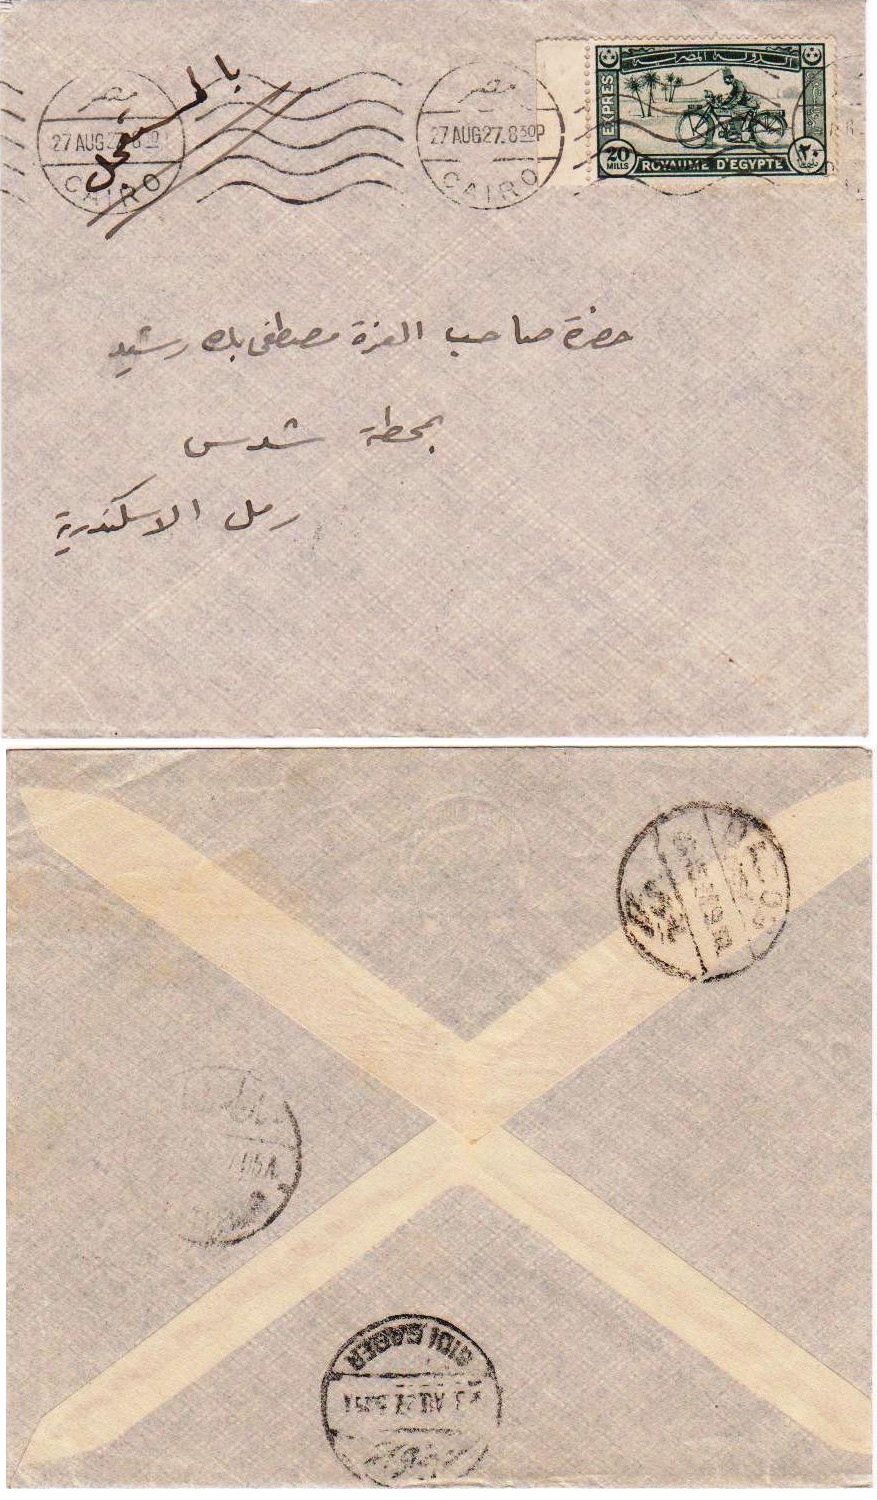 بالمستعجل
مصر
27 AUG 27. 8
CAIRO
مصر
27 AUG 27. 8 30P
CAIRO
الدولة المصرية
EXPRES
20
MILLS
ROYAUME D'EGYPTE
٢٠
حضرة صاحب العزة مصطفى بك رشيد
بمحطة شدس
رمل الاسكندرية
SIDI GABER